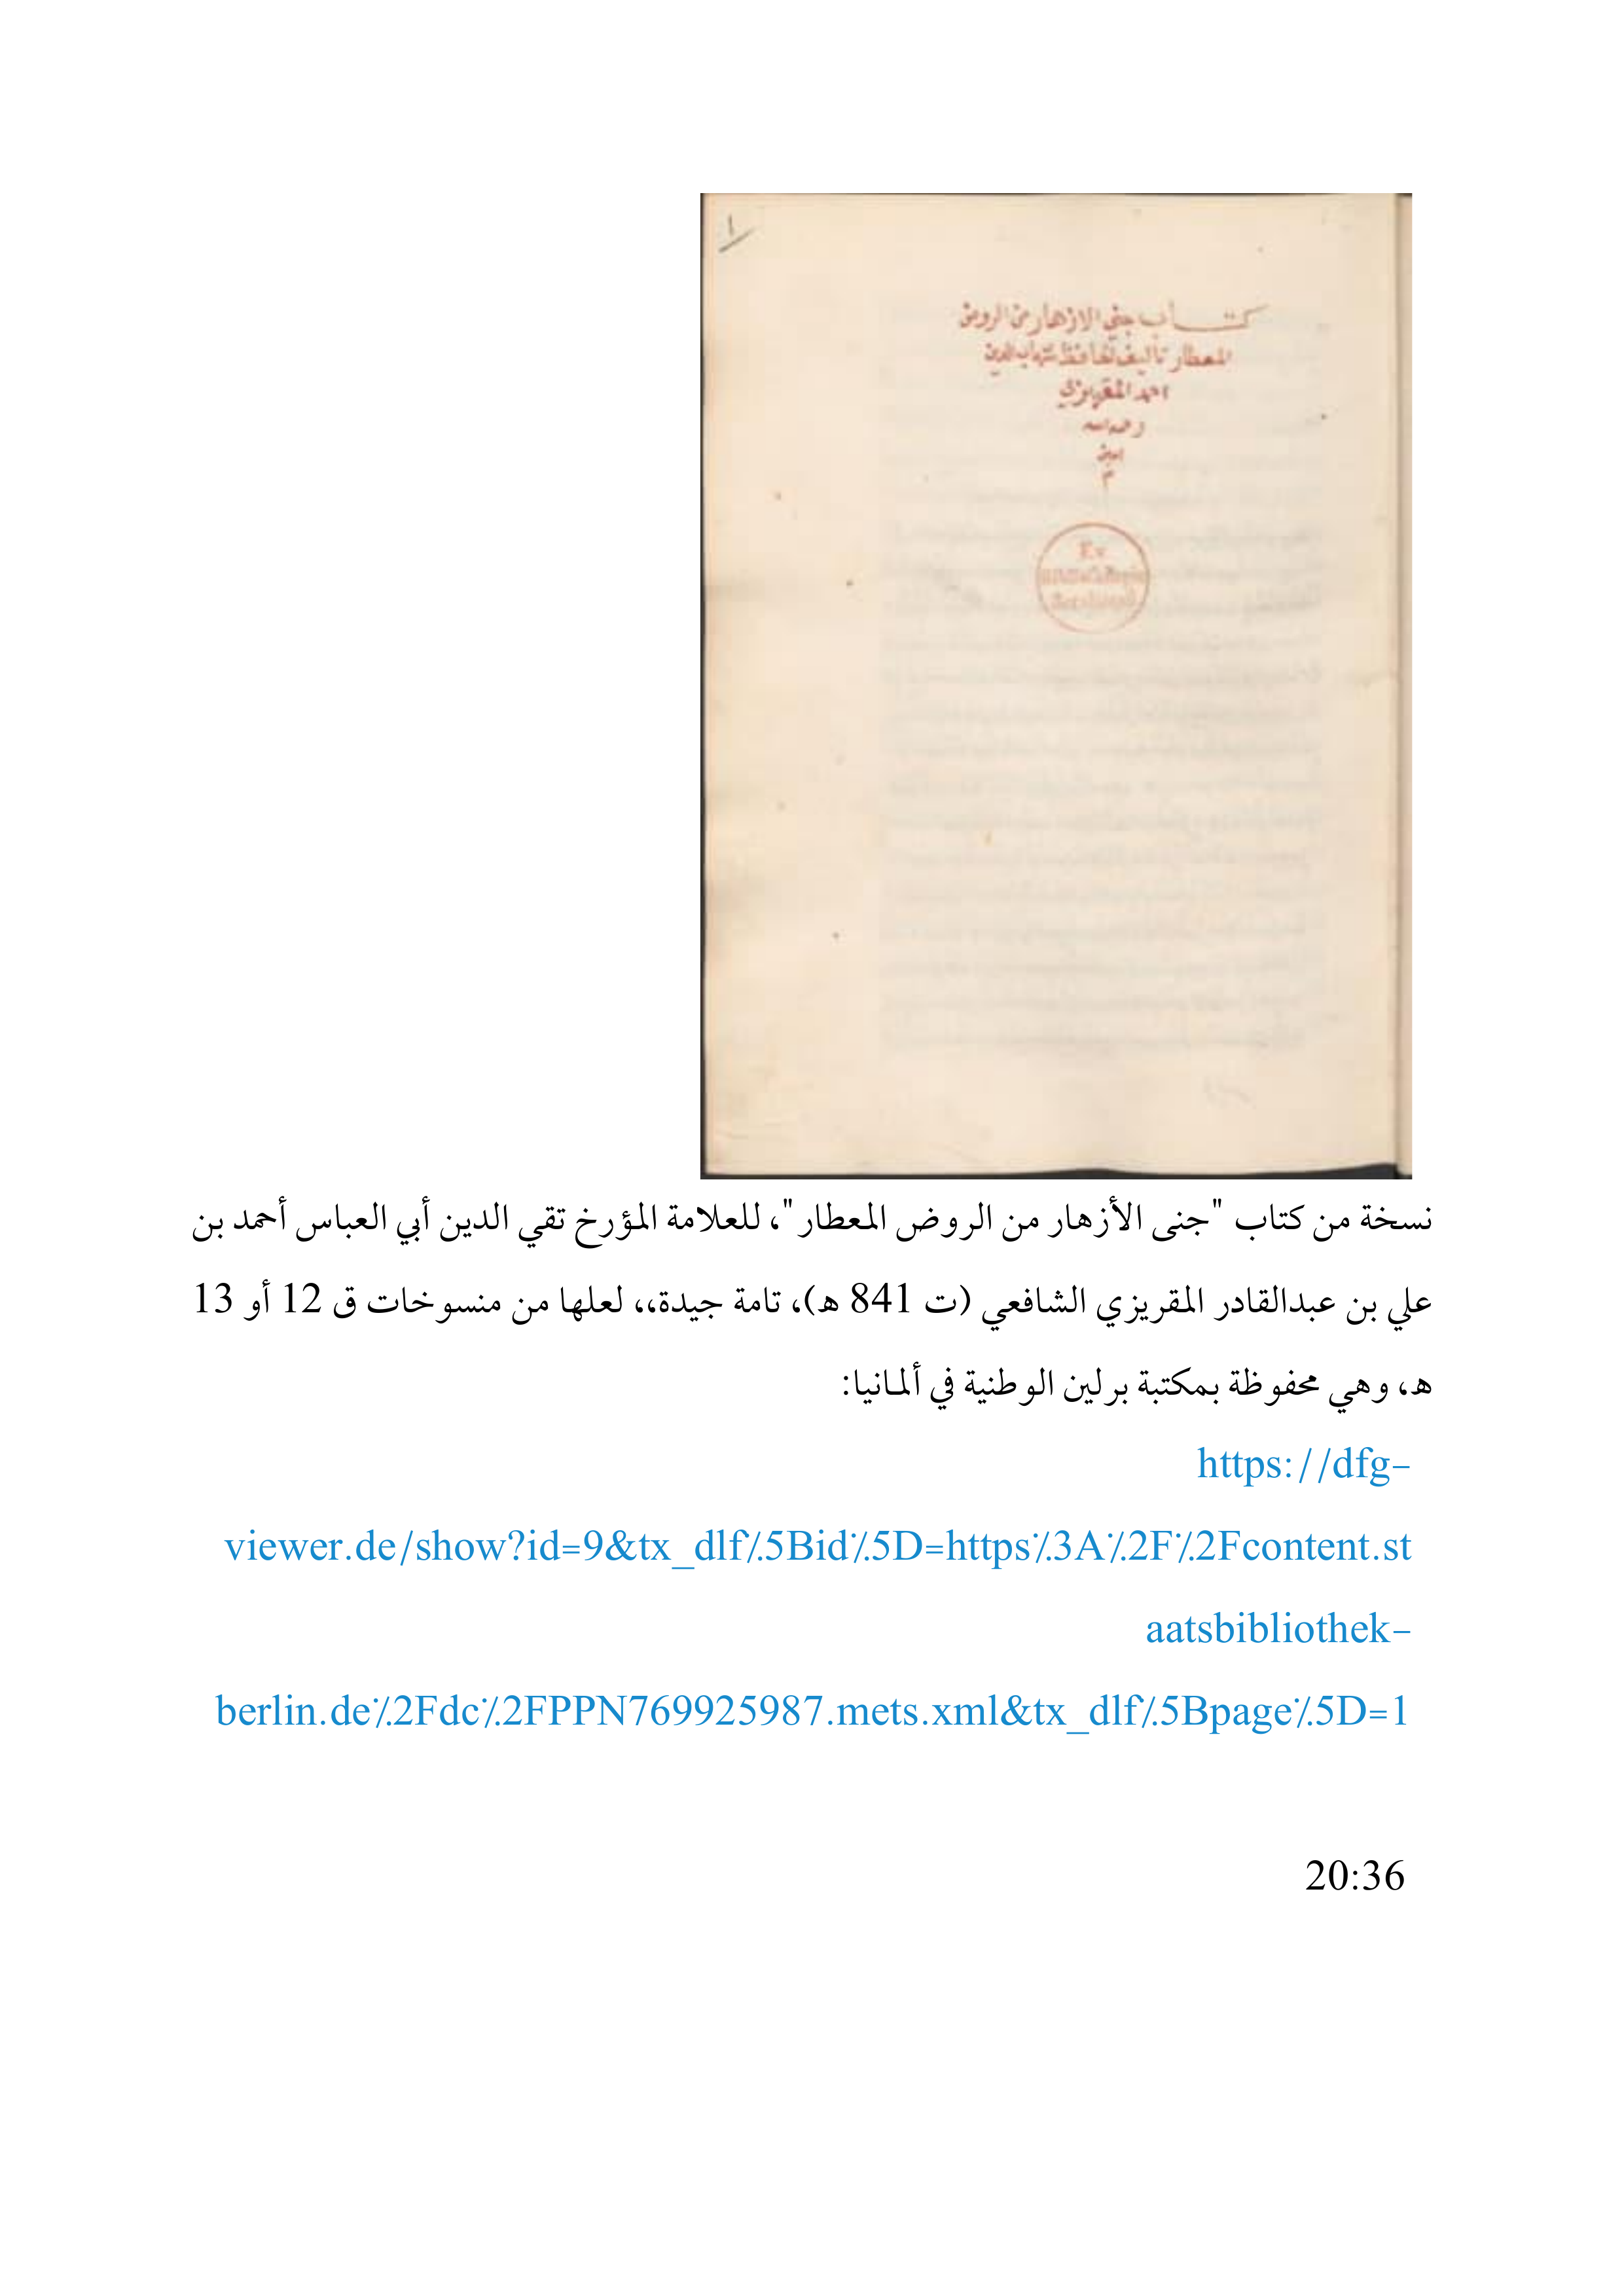 ١
كتاب جني الازهار من الروض
المعطار تأليف الحافظ شهاب الدين
احمد المقريزي
رحمه الله
امين
م
Ex
Berolinensi
نسخة من كتاب "جنى الأزهار من الروض المعطار"، للعلامة المؤرخ تقي الدين أبي العباس أحمد بن
علي بن عبدالقادر المقريزي الشافعي (ت 841 ه)، تامة جيدة،، لعلها من منسوخات ق 12 أو 13
ه، وهي محفوظة بمكتبة برلين الوطنية في ألمانيا:
https://dfg-
viewer.de/show?id=9&tx_dlf٪5Bid٪5D=https٪3A٪2F٪2Fcontent.st
aatsbibliothek-
berlin.de٪2Fdc٪2FPPN769925987.mets.xml&tx_dlf٪5Bpage٪5D=1
20:36